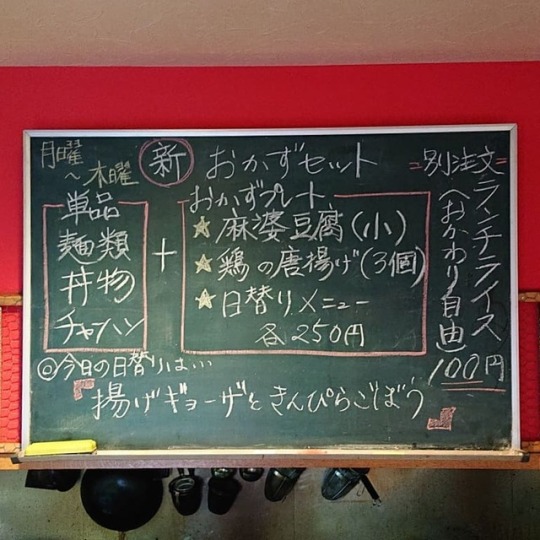 月曜
～木曜
新 おかずセット
単品
麺類
丼物
チャーハン
+
おかずプレート
★麻婆豆腐(小)
★鶏の唐揚げ(3個)
★日替りメニュー
各250円
=別注文=
ランチライス
(おかわり自由)
100円
◎今日の日替りは…
『揚げギョーザときんぴらごぼう』